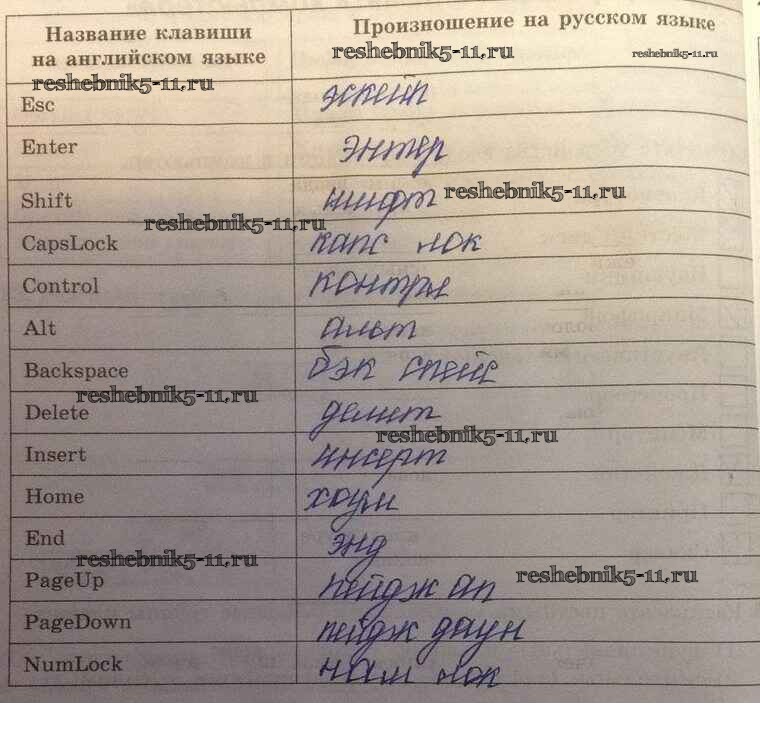 Название клавиши на английском языке
Произношение на русском языке
reshebnik5-11.ru
reshebnik5-11.ru
reshebnik5-11.ru
Esc эскейп
Enter энтер
Shift шифт
reshebnik5-11.ru
reshebnik5-11.ru
CapsLock капс лок
Control контрл
Alt альт
Backspace бэк спейс
reshebnik5-11.ru
Delete делит
reshebnik5-11.ru
Insert инсерт
Home хоум
End энд
reshebnik5-11.ru
PageUp пейдж ап
reshebnik5-11.ru
PageDown пейдж даун
NumLock нам лок